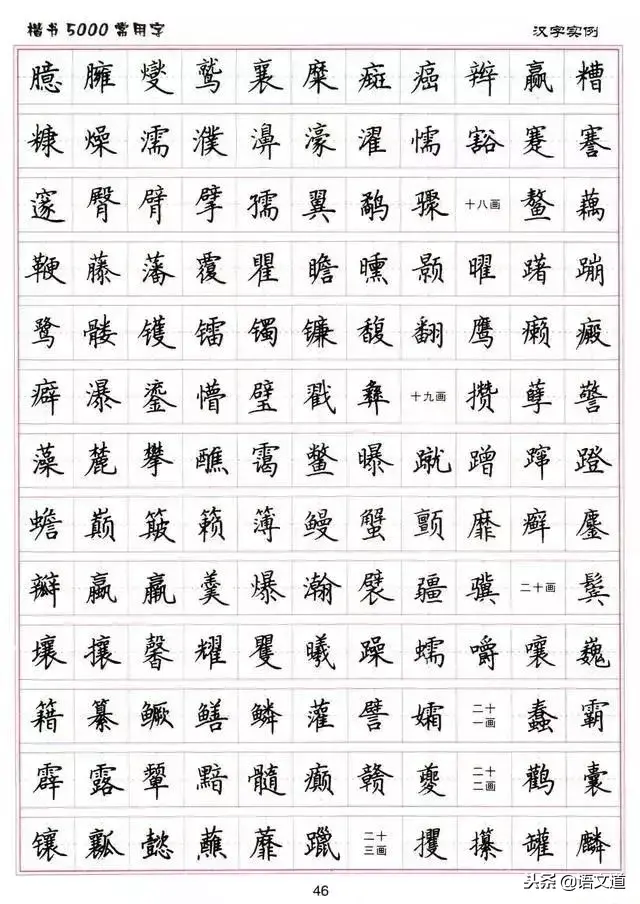 楷书5000常用字 汉字实例
臆 臃 燮 鹫 襄 糜 癍 癌 辫 赢 糟
糠 燥 濡 濮 濞 濠 濯 懦 豁 蹇 謇
邃 臀 臂 擘 孺 翼 鹬 骤 十八画 鳌 藕
鞭 藤 藩 覆 瞿 瞻 曛 颢 曜 躇 蹦
鹭 髅 镬 镭 镯 镰 馥 翻 鹰 癞 癜
癖 瀑 鎏 懵 璧 戳 彝 十九画 攒 孽 警
藻 麓 攀 醮 霭 鳖 曝 蹴 蹭 蹿 蹬
蟾 巅 簸 籁 簿 鳗 蟹 颤 靡 癣 鏖
瓣 蠃 羸 羹 爆 瀚 襞 疆 骥 二十画 鬓
壤 攘 馨 耀 矍 曦 躁 蠕 嚼 嚷 巍
籍 纂 鳜 鳝 鳞 灌 譬 孀 二十一画 蠢 霸
霹 露 颦 黯 髓 癫 赣 夔 二十二画 鹳 囊
镶 瓤 懿 蘸 蘼 躐 二十三画 攫 攥 罐 麟
46
头条@语文道